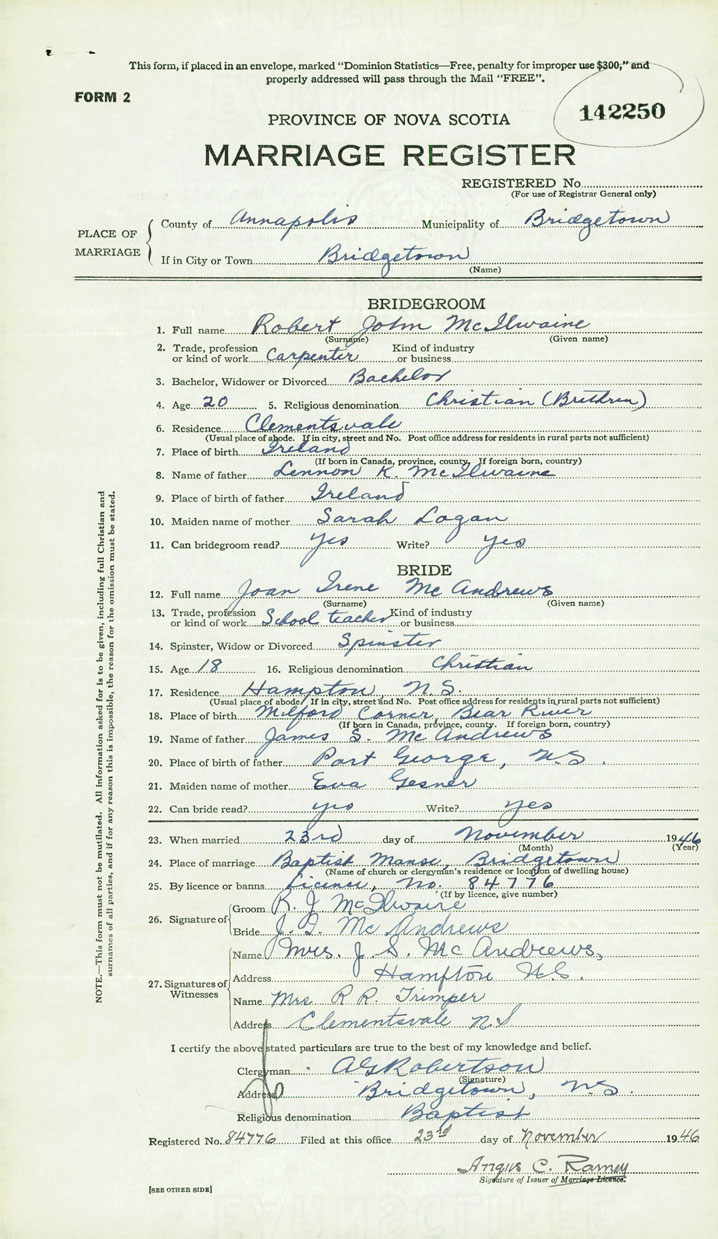 This form, if placed in an envelope, marked "Dominion Statistics—Free, penalty for improper use $300," and
properly addressed will pass through the Mail "FREE".
FORM 2
142250
PROVINCE OF NOVA SCOTIA
MARRIAGE REGISTER
REGISTERED No.
(For use of Registrar General only)
PLACE OF MARRIAGE
County of Annapolis Municipality of Bridgetown
If in City or Town Bridgetown
(Name)
BRIDEGROOM
1. Full name Robert John McIlwaine
(Surname) (Given name)
2. Trade, profession or kind of work Carpenter Kind of industry or business
3. Bachelor, Widower or Divorced Bachelor
4. Age 20 5. Religious denomination Christian (Brethren)
6. Residence Clementsvale
(Usual place of abode. If in city, street and No. Post office address for residents in rural parts not sufficient)
7. Place of birth Ireland
(If born in Canada, province, county. If foreign born, country)
8. Name of father Lennon K. McIlwaine
9. Place of birth of father Ireland
10. Maiden name of mother Sarah Logan
11. Can bridegroom read? yes Write? yes
BRIDE
12. Full name Joan Irene McAndrews
(Surname) (Given name)
13. Trade, profession or kind of work School teacher Kind of industry or business
14. Spinster, Widow or Divorced Spinster
15. Age 18 16. Religious denomination Christian
17. Residence Hampton, N.S.
(Usual place of abode. If in city, street and No. Post office address for residents in rural parts not sufficient)
18. Place of birth Milford Corner, Bear River
(If born in Canada, province, county. If foreign born, country)
19. Name of father James S. McAndrews
20. Place of birth of father Port George, N.S.
21. Maiden name of mother Eva Gesner
22. Can bride read? yes Write? yes
23. When married 23rd day of November 1946
(Month) (Year)
24. Place of marriage Baptist Manse, Bridgetown
(Name of church or clergyman's residence or location of dwelling house)
25. By licence or banns licence, No. 84776
(If by licence, give number)
26. Signature of
Groom R. J. McIlwaine
Bride J. I. McAndrews
27. Signatures of Witnesses
Name Mrs. J. S. McAndrews,
Address Hampton N.S.
Name Mrs R R Trimper
Address Clementsvale NS
I certify the above stated particulars are true to the best of my knowledge and belief.
Clergyman AG Robertson
(Signature)
Address Bridgetown, N.S.
Religious denomination Baptist
Registered No. 84776 Filed at this office 23rd day of November 1946
Angus C. Ramey
Signature of Issuer of Marriage Licence.
[SEE OTHER SIDE]
NOTE.—This form must not be mutilated. All information asked for is to be given, including full Christian and
surnames of all parties, and if for any reason this is impossible, the reason for the omission must be stated.